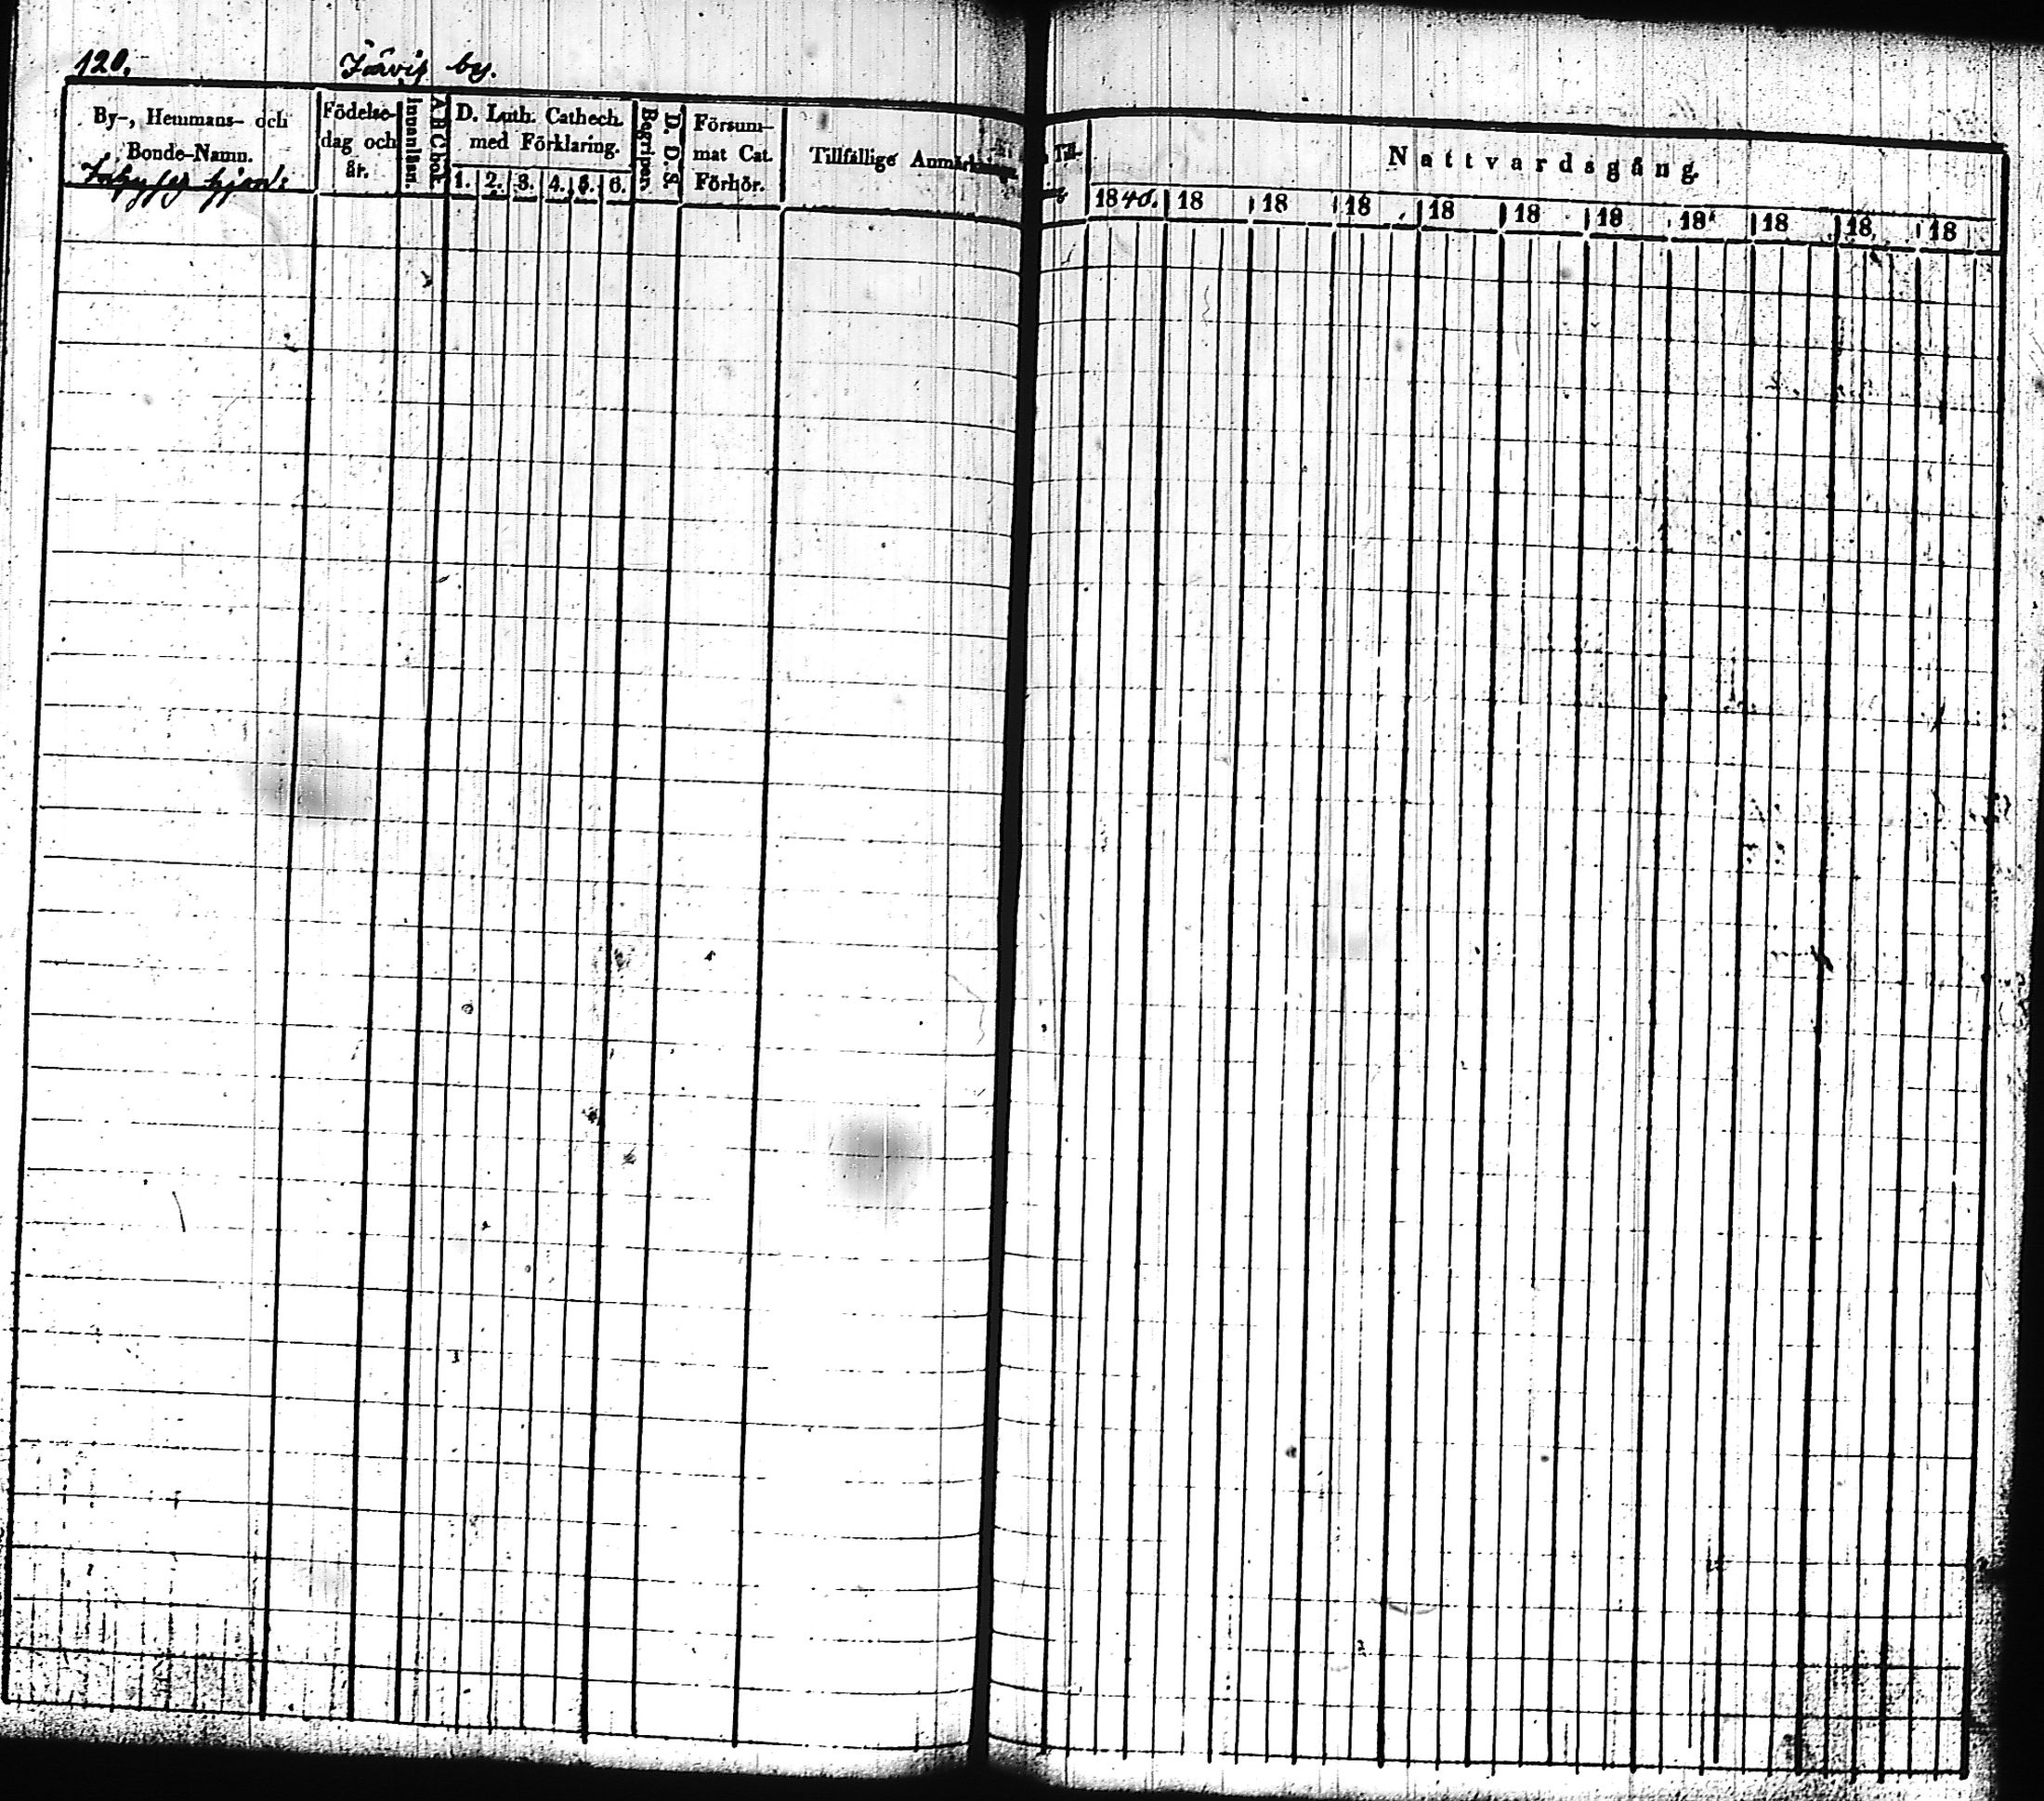 120. by.
By-, Hemmans- och
Bonde-Namn.
Födelse-
dag och
år.
Innanläsn.
A B C bok.
D. Luth. Cathech.
med Förklaring.
1. 2. 3. 4. 5. 6.
Begriper.
D. D. S.
Försum-
mat Cat.
Förhör.
Tillfällige Anmärkningar.
Till-
Nattvardsgång.
1840. 18 18 18 18 18 18 18 18 18 18